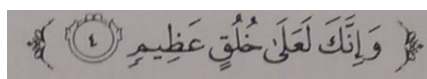 ﴿ وَإِنَّكَ لَعَلَىٰ خُلُقٍ عَظِيمٍ ٤ ﴾